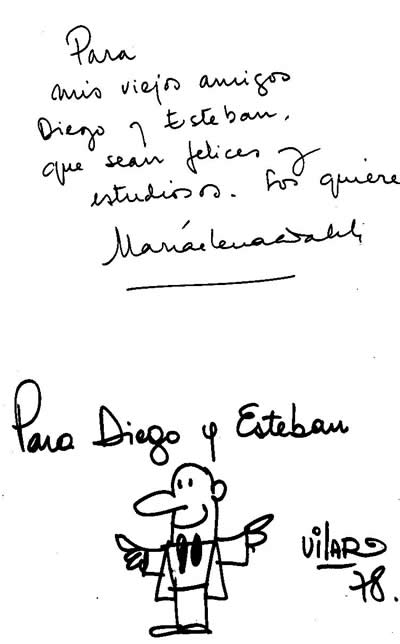 Para
mis viejos amigos
Diego y Esteban,
que sean felices y
estudiosos. Los quiere
María Elena Walsh
Para Diego y Esteban
VILAR
78.